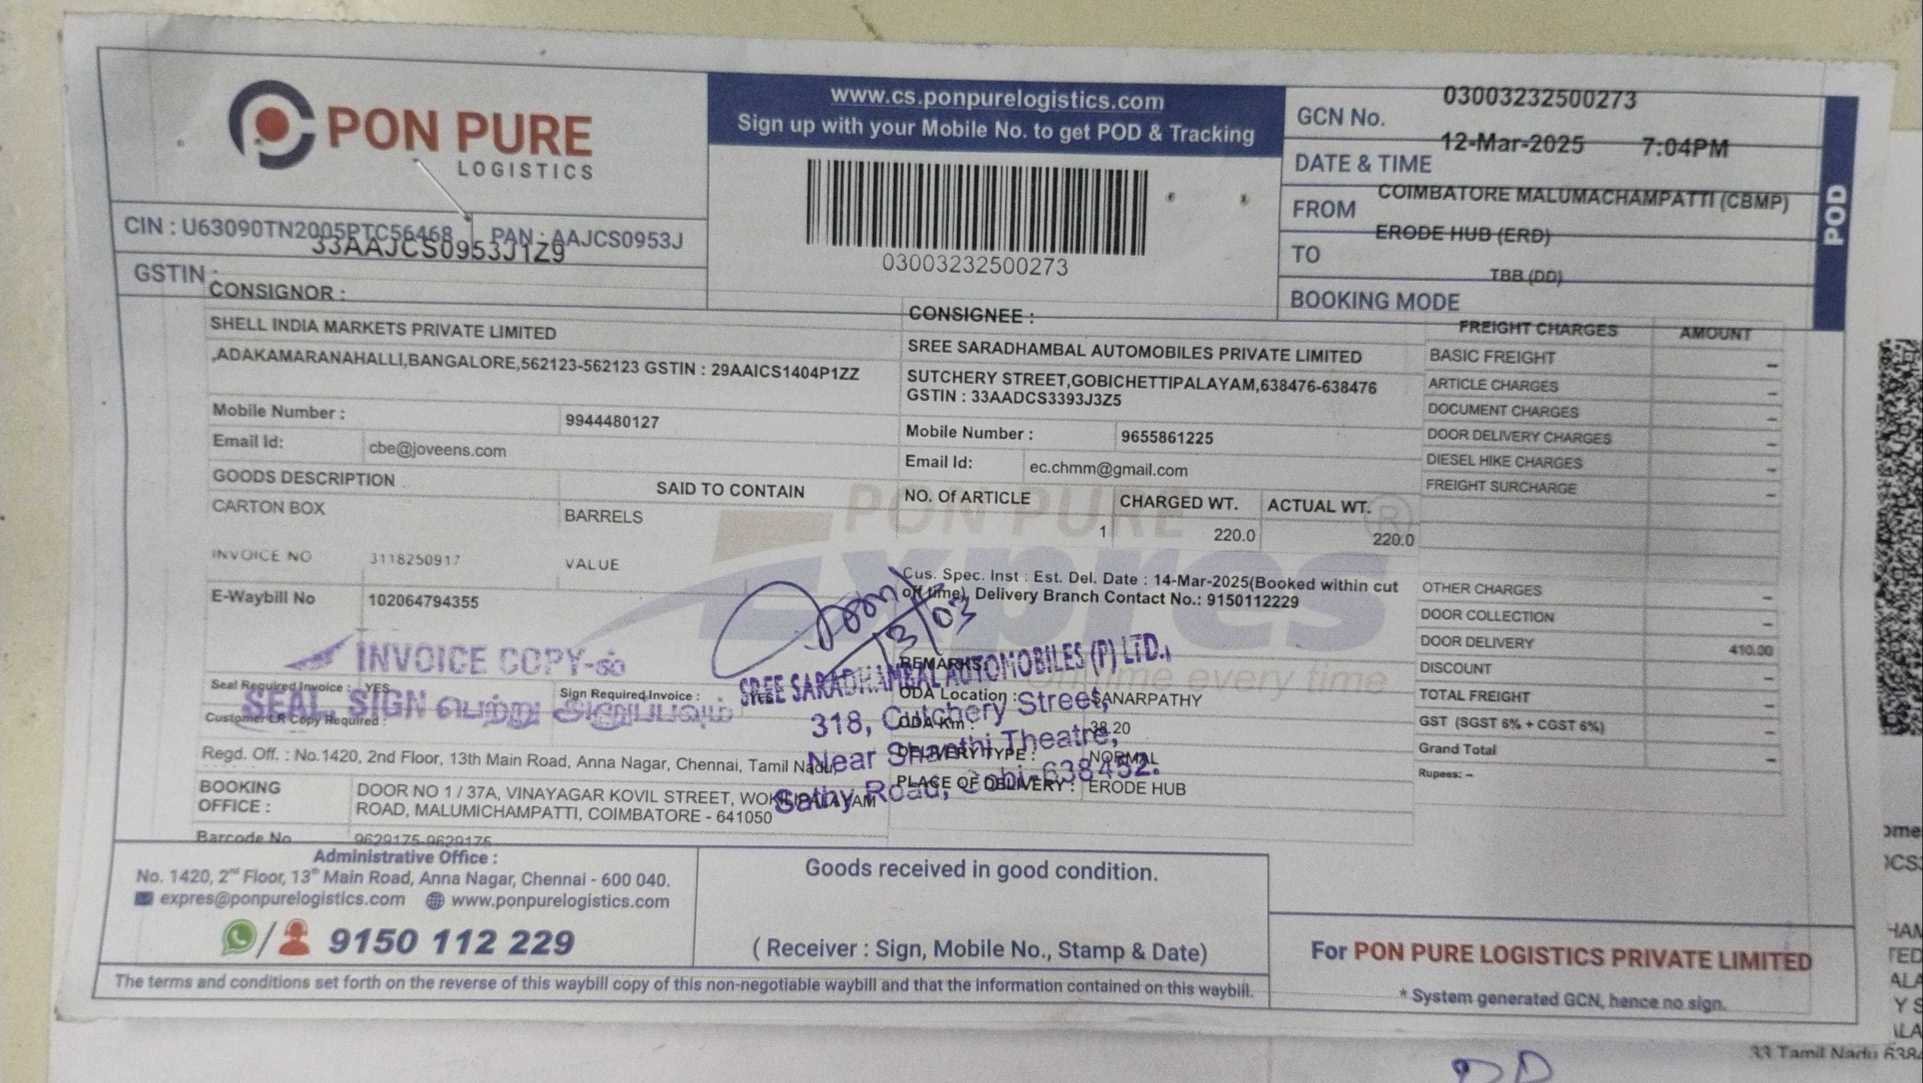 PON PURE
LOGISTICS
www.cs.ponpurelogistics.com
Sign up with your Mobile No. to get POD & Tracking
03003232500273
GCN No. 03003232500273
DATE & TIME 12-Mar-2025 7:04PM
FROM COIMBATORE MALUMACHAMPATTI (CBMP)
TO ERODE HUB (ERD)
BOOKING MODE TBB (DD)
POD
CIN : U63090TN2005PTC56468 PAN : AAJCS0953J
GSTIN : 33AAJCS0953J1Z9
CONSIGNOR :
SHELL INDIA MARKETS PRIVATE LIMITED
,ADAKAMARANAHALLI,BANGALORE,562123-562123 GSTIN : 29AAICS1404P1ZZ
Mobile Number : 9944480127
Email Id: cbe@joveens.com
CONSIGNEE :
SREE SARADHAMBAL AUTOMOBILES PRIVATE LIMITED
SUTCHERY STREET,GOBICHETTIPALAYAM,638476-638476
GSTIN : 33AADCS3393J3Z5
Mobile Number : 9655861225
Email Id: ec.chmm@gmail.com
GOODS DESCRIPTION SAID TO CONTAIN NO. Of ARTICLE CHARGED WT. ACTUAL WT.
CARTON BOX BARRELS 1 220.0 220.0
INVOICE NO 3118250917 VALUE
E-Waybill No 102064794355
Cus. Spec. Inst : Est. Del. Date : 14-Mar-2025(Booked within cut
off time), Delivery Branch Contact No.: 9150112229
PON PURE
Expres
ontime every time
INVOICE COPY-ல்
SEAL, SIGN பெற்று அனுப்பவும்
Seal Required Invoice : YES Sign Required Invoice :
Customer LR Copy Required :
REMARKS
ODA Location : SANARPATHY
ODA Km : 38.20
DELIVERY TYPE : NORMAL
PLACE OF DELIVERY : ERODE HUB
SREE SARADHAMBAL AUTOMOBILES (P) LTD.,
318, Cutchery Street,
Near Shanthi Theatre,
Sathy Road, Gobi-638452.
Regd. Off. : No.1420, 2nd Floor, 13th Main Road, Anna Nagar, Chennai, Tamil Nadu,
BOOKING OFFICE :
DOOR NO 1 / 37A, VINAYAGAR KOVIL STREET,
ROAD, MALUMICHAMPATTI, COIMBATORE - 641050
Barcode No 9629175-9629175
FREIGHT CHARGES AMOUNT
BASIC FREIGHT –
ARTICLE CHARGES –
DOCUMENT CHARGES –
DOOR DELIVERY CHARGES –
DIESEL HIKE CHARGES –
FREIGHT SURCHARGE –
OTHER CHARGES –
DOOR COLLECTION –
DOOR DELIVERY 410.00
DISCOUNT –
TOTAL FREIGHT –
GST (SGST 6% + CGST 6%) –
Grand Total –
Rupees: –
Administrative Office :
No. 1420, 2nd Floor, 13th Main Road, Anna Nagar, Chennai - 600 040.
expres@ponpurelogistics.com www.ponpurelogistics.com
9150 112 229
Goods received in good condition.
( Receiver : Sign, Mobile No., Stamp & Date)
For PON PURE LOGISTICS PRIVATE LIMITED
* System generated GCN, hence no sign.
The terms and conditions set forth on the reverse of this waybill copy of this non-negotiable waybill and that the information contained on this waybill.
33 Tamil Nadu